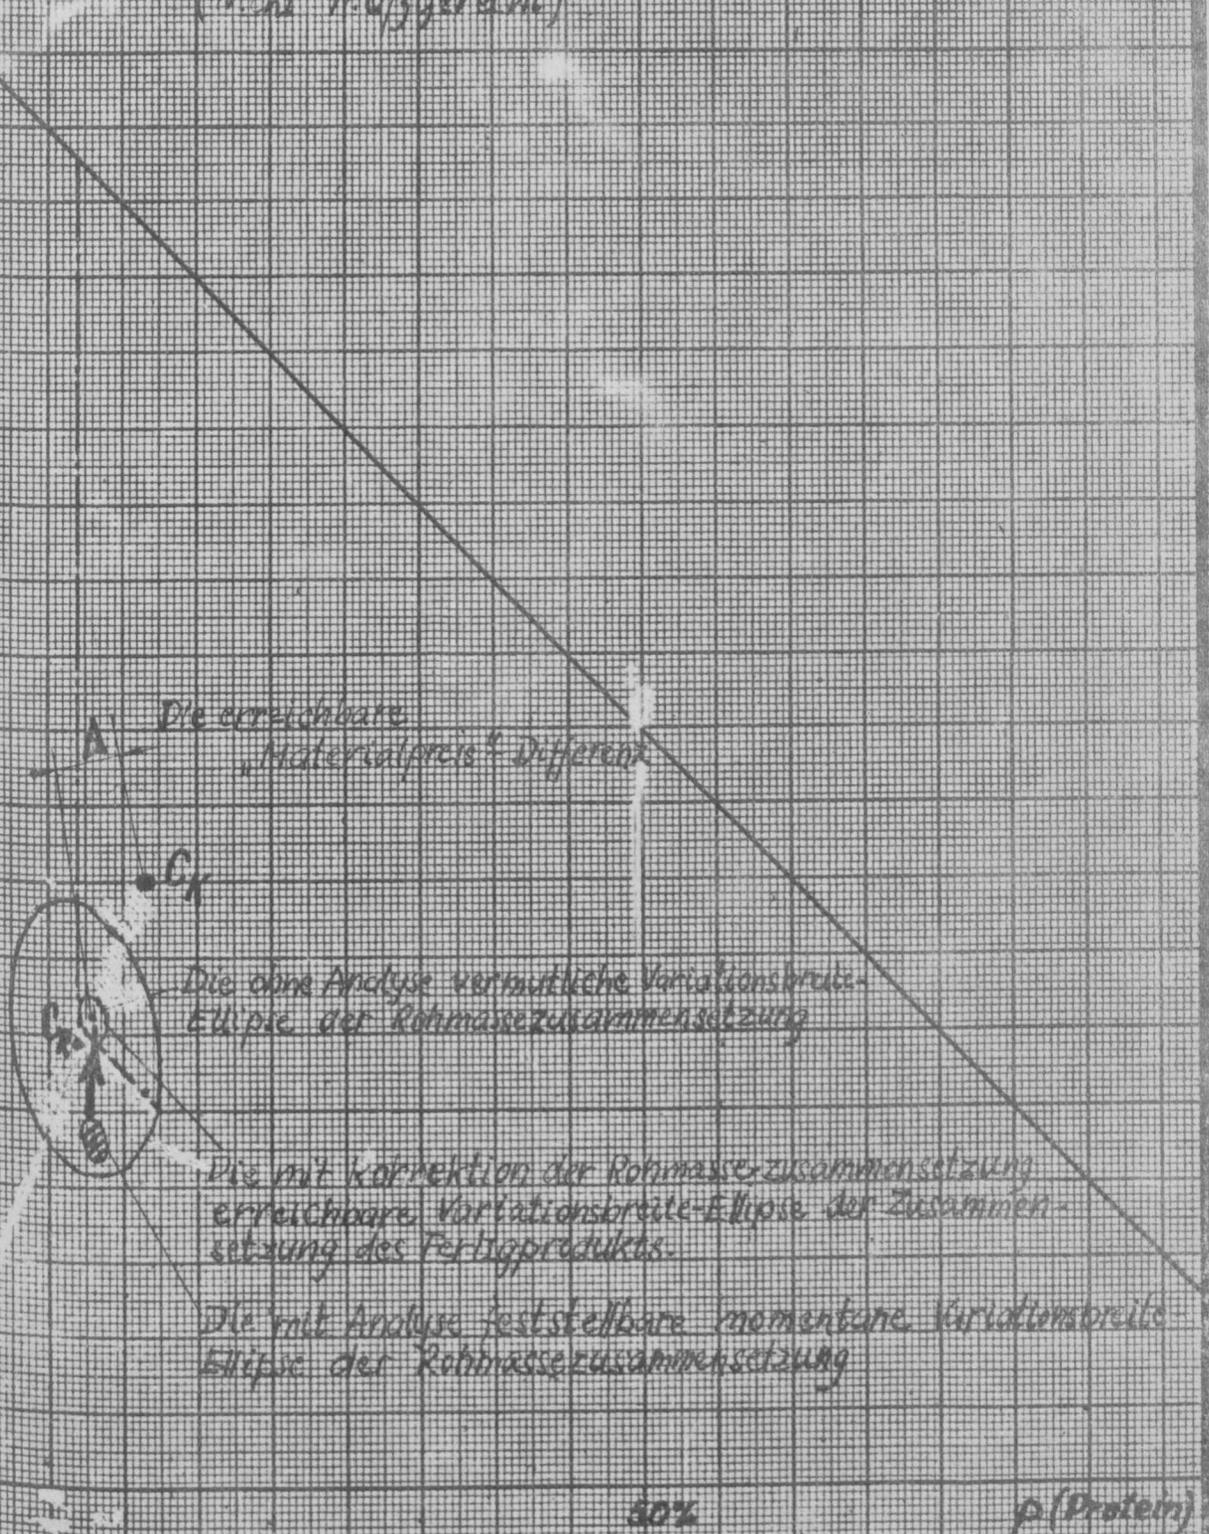 A
Die erreichbare
„Materialpreis“-Differenz
C_K
Die ohne Analyse vermutliche Variationsbreite-
Ellipse der Rohmassezusammensetzung
Die mit Korrektion der Rohmasse-zusammensetzung
erreichbare Variationsbreite-Ellipse der Zusammen-
setzung des Fertigprodukts.
Die mit Analyse feststellbare momentane Variationsbreite-
Ellipse der Rohmassezusammensetzung
50% p (Protein)